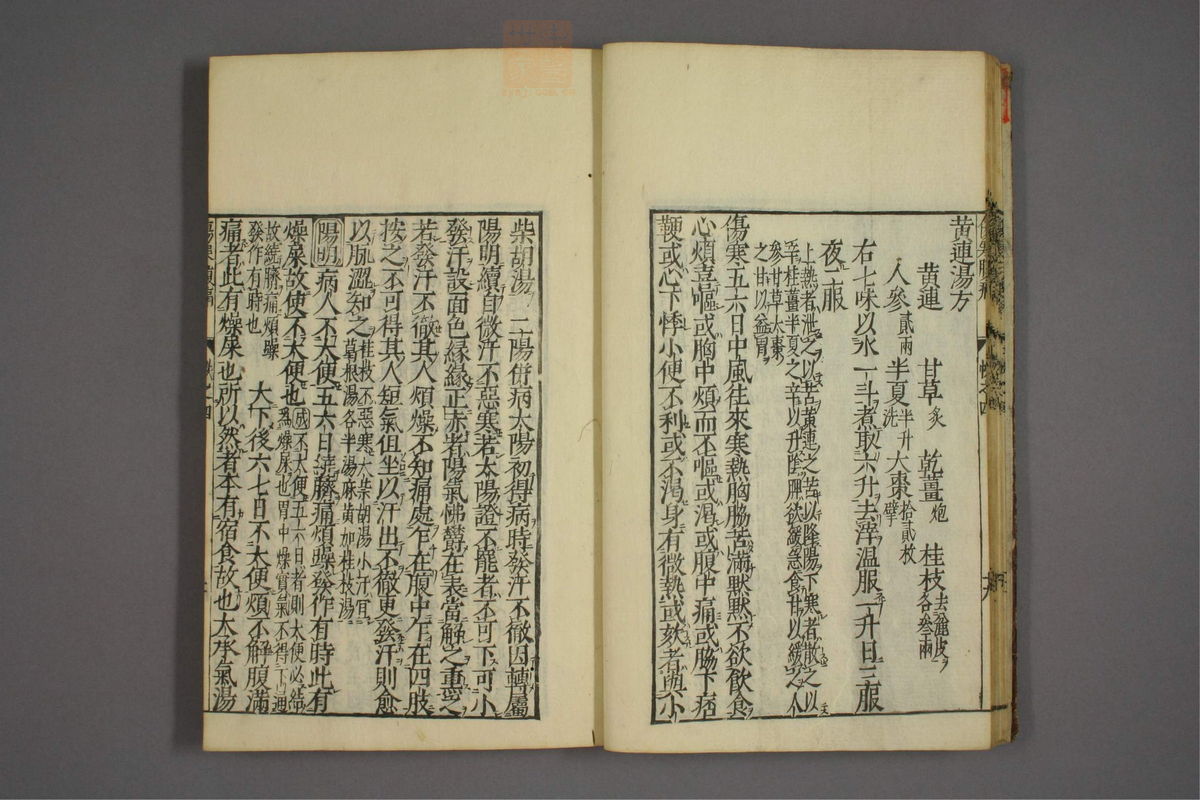 黄連湯方
黄連 甘草炙 乾薑炮 桂枝去麁皮各叁兩
人參貳兩 半夏半升洗 大棗拾貳枚擘
右七味以水一斗煮取六升去滓温服一升日三服
夜二服
上熱者泄之以苦黄連之苦以降陽下寒者散之以
辛桂薑半夏之辛以升陰脾欲緩急食甘以緩之人
參甘草大棗
之甘以益胃
傷寒五六日中風往來寒熱胸脇苦滿默默不欲飲食
心煩喜嘔或胸中煩而不嘔或渴或腹中痛或脇下痞
鞕或心下悸小便不利或不渴身有微熱或欬者與小
柴胡湯 二陽併病太陽初得病時發汗不徹因轉屬
陽明續自微汗不惡寒若太陽證不罷者不可下可小
發汗設面色緣緣正赤者陽氣怫欝在表當解之熏之
若發汗不徹其人煩燥不知痛處乍在腹中乍在四肢
按之不可得其人短氣但坐以汗出不徹更發汗則愈
以脉澀知之桂枝不惡寒大柴胡湯小汗宜
葛根湯各半湯麻黄加桂枝湯
陽明病人不大便五六日遶臍痛煩躁發作有時此有
燥屎故使不大便也成不大便五六日者則大便必結
爲燥屎也胃中燥實氣不得下通
故繞臍痛煩躁
發作有時也
大下後六七日不大便煩不解腹滿
痛者此有燥屎也所以然者本有宿食故也大承氣湯